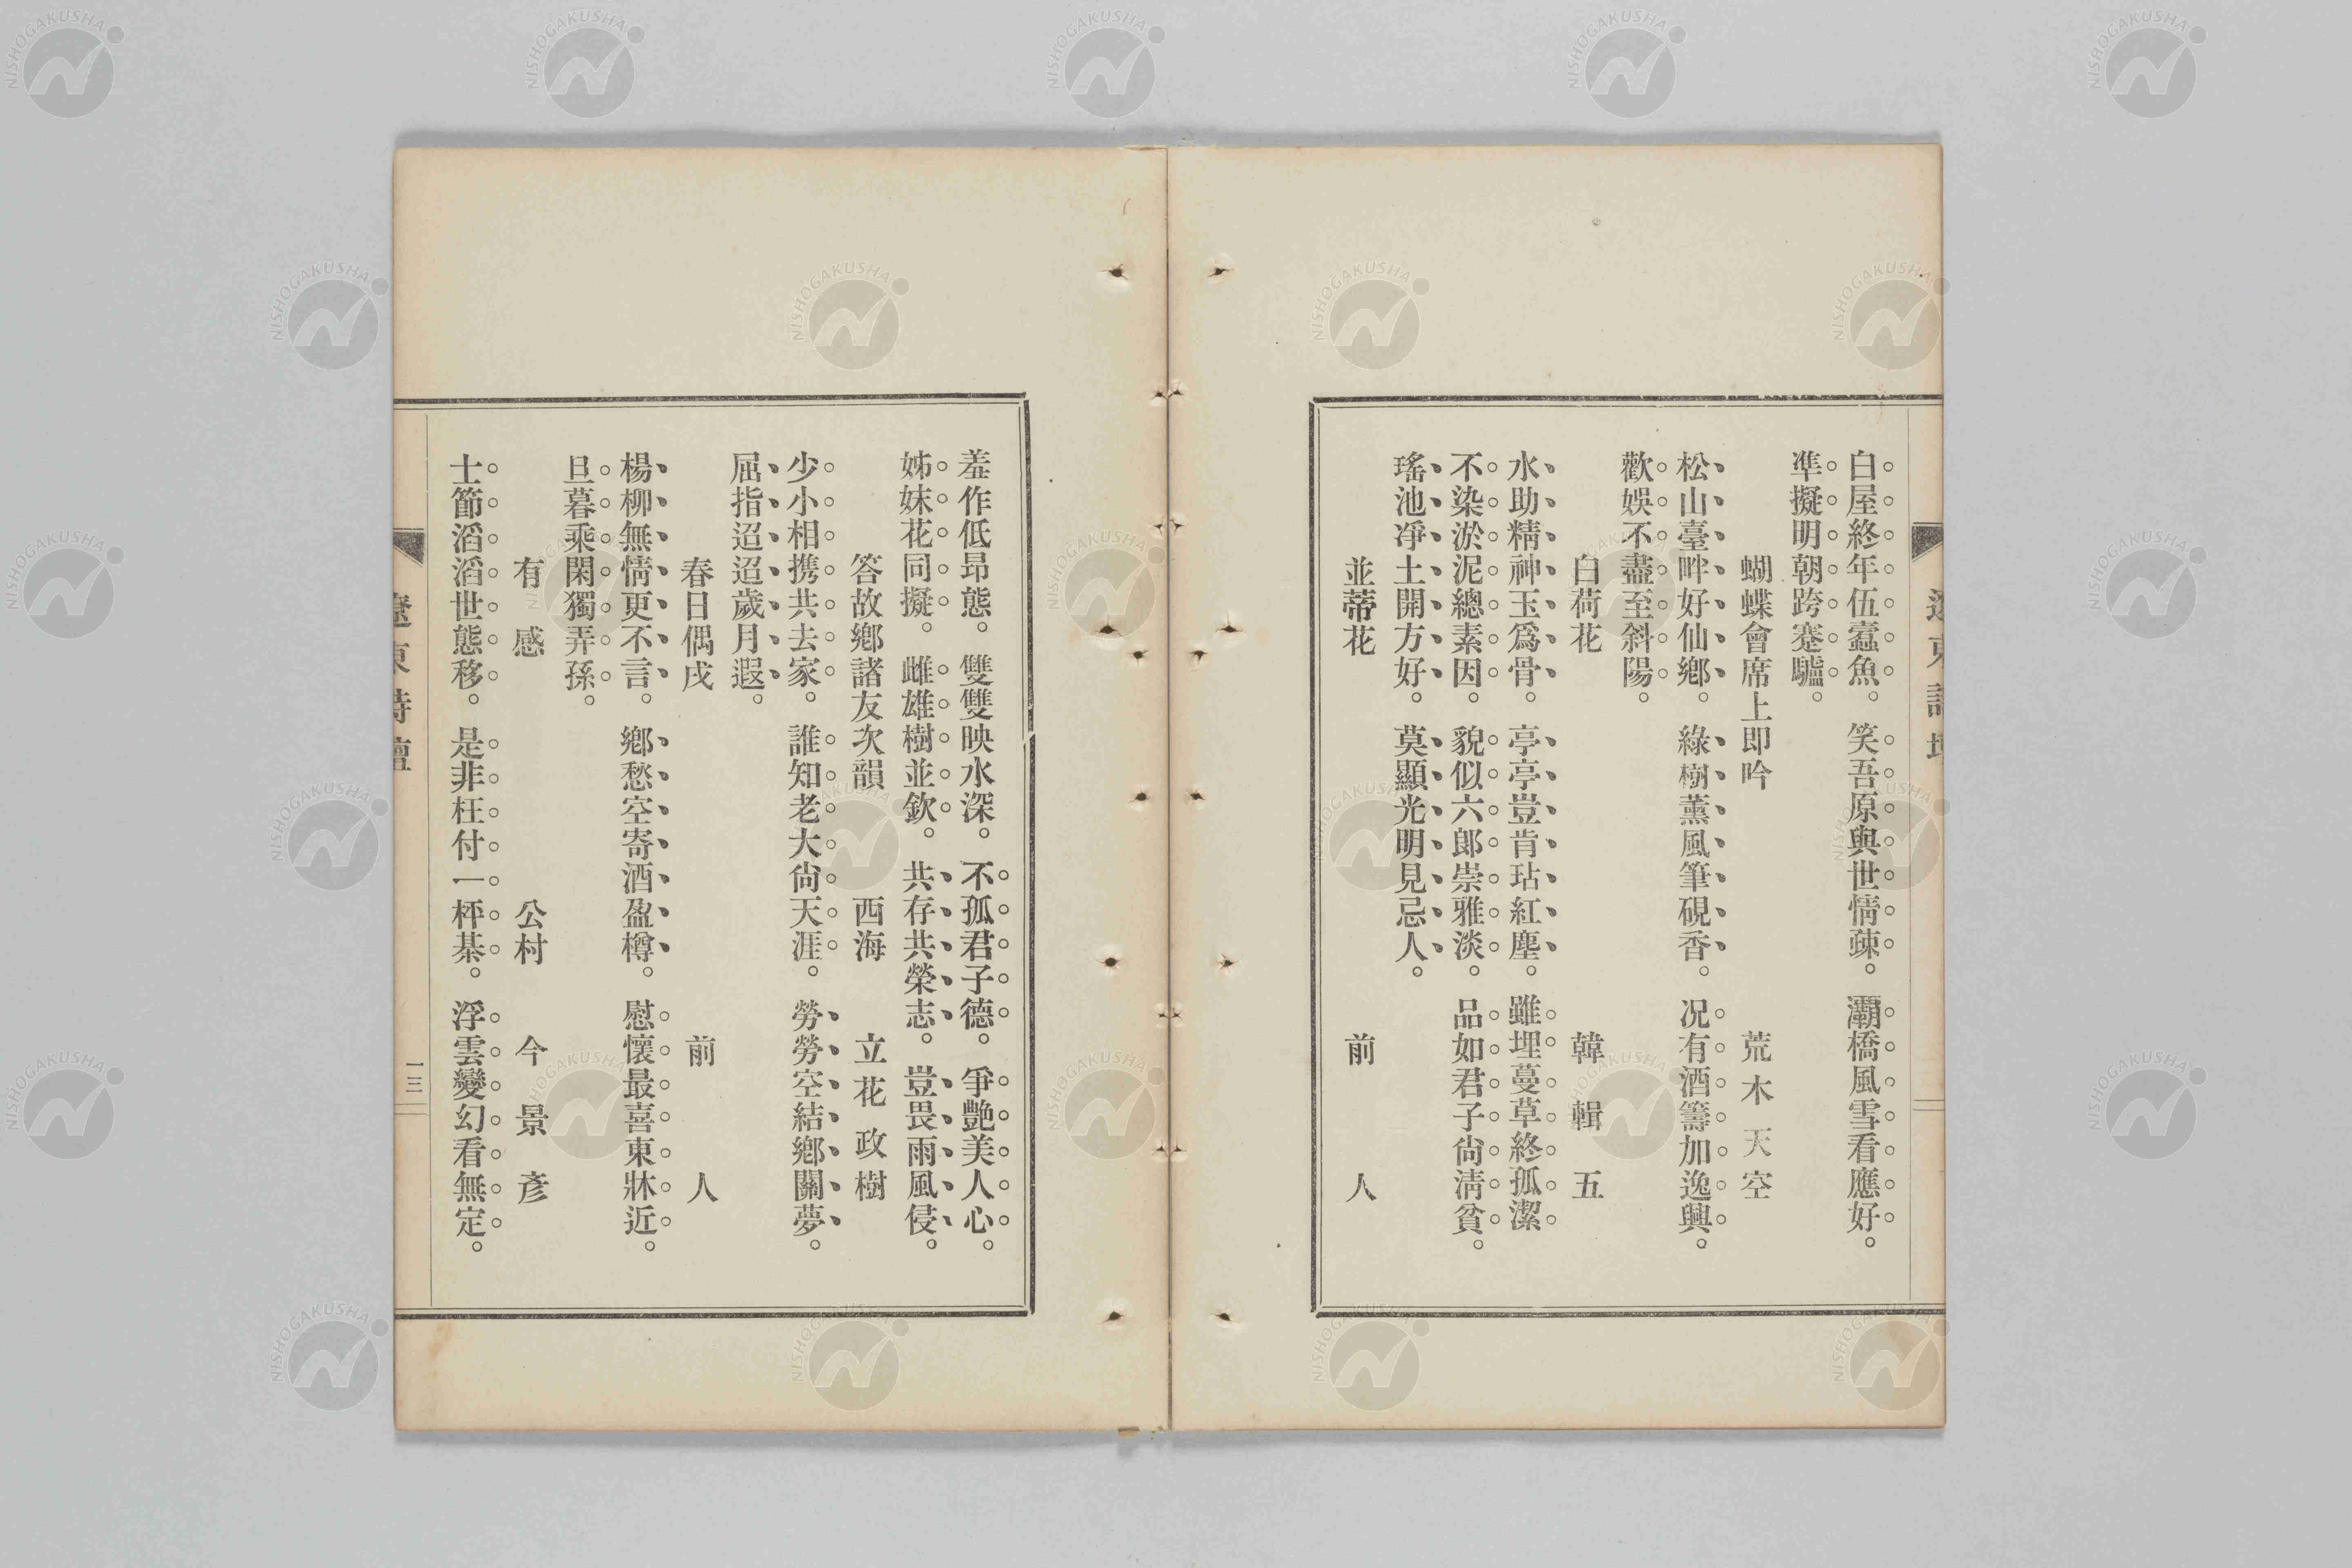 白屋終年伍蠹魚。笑吾原與世情疎。灞橋風雪看應好。
準擬明朝跨蹇驢。
蝴蝶會席上即吟　荒木天空
松山臺畔好仙鄉。綠樹薰風筆硯香。况有酒籌加逸興。
歡娛不盡至斜陽。
白荷花　韓輯五
水助精神玉爲骨。亭亭豈肯玷紅塵。雖埋蔓草終孤潔
不染淤泥總素因。貌似六郎崇雅淡。品如君子尙淸貧。
瑤池凈土開方好。莫顯光明見忌人。
並蒂花　前人
羞作低昻態。雙雙映水深。不孤君子德。爭艷美人心。
姊妹花同擬。雌雄樹並欽。共存共榮志。豈畏雨風侵。
答故鄉諸友次韻　西海　立花政樹
少小相携共去家。誰知老大尙天涯。勞勞空結鄉關夢。
屈指迢迢歲月遐。
春日偶成　前人
楊柳無情更不言。鄉愁空寄酒盈樽。慰懷最喜東牀近。
旦暮乘閑獨弄孫。
有感　公村　今景彥
士節滔滔世態移。是非枉付一枰棊。浮雲變幻看無定。
遼東詩壇
一三
NISHOGAKUSHA